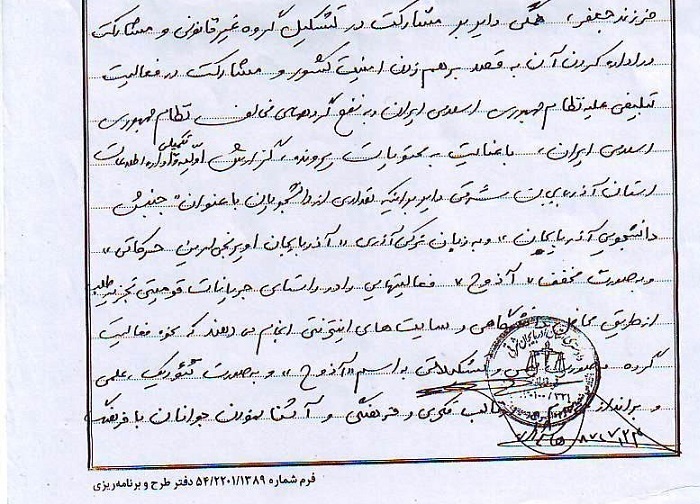 فرزند جعفر، همگی دایر بر مشارکت در تشکیل گروه غیرقانونی و مشارکت
در اداره کردن آن به قصد برهم زدن امنیت کشور و مشارکت در فعالیت
تبلیغی علیه نظام جمهوری اسلامی ایران و به نفع گروههای مخالف نظام جمهوری
اسلامی ایران، با عنایت به محتویات پرونده، گزارش اولیه و تکمیلی اداره اطلاعات
استان آذربایجان شرقی دایر بر اینکه تعدادی از دانشجویان با عنوان "جنبش
دانشجویی آذربایجان" و به زبان ترکی آذری «آذربایجان اویرنجی حرکاتی»
و به صورت مخفف "آذوح" فعالیتهایی را در راستای جریانات قومیتی تجزیه طلب
از طریق محافل دانشگاهی و سایت های اینترنتی انجام می دهند که نحوه فعالیت
گروه و تشکیلاتی به اسم «آذوح» و به صورت تئوریک، علمی
و قالب فکری و فرهنگی و آشنا نمودن جوانان با فرهنگ
فرم شماره ۵۴/۲۲۰۱/۱۳۸۹ دفتر طرح و برنامه‌ریزی